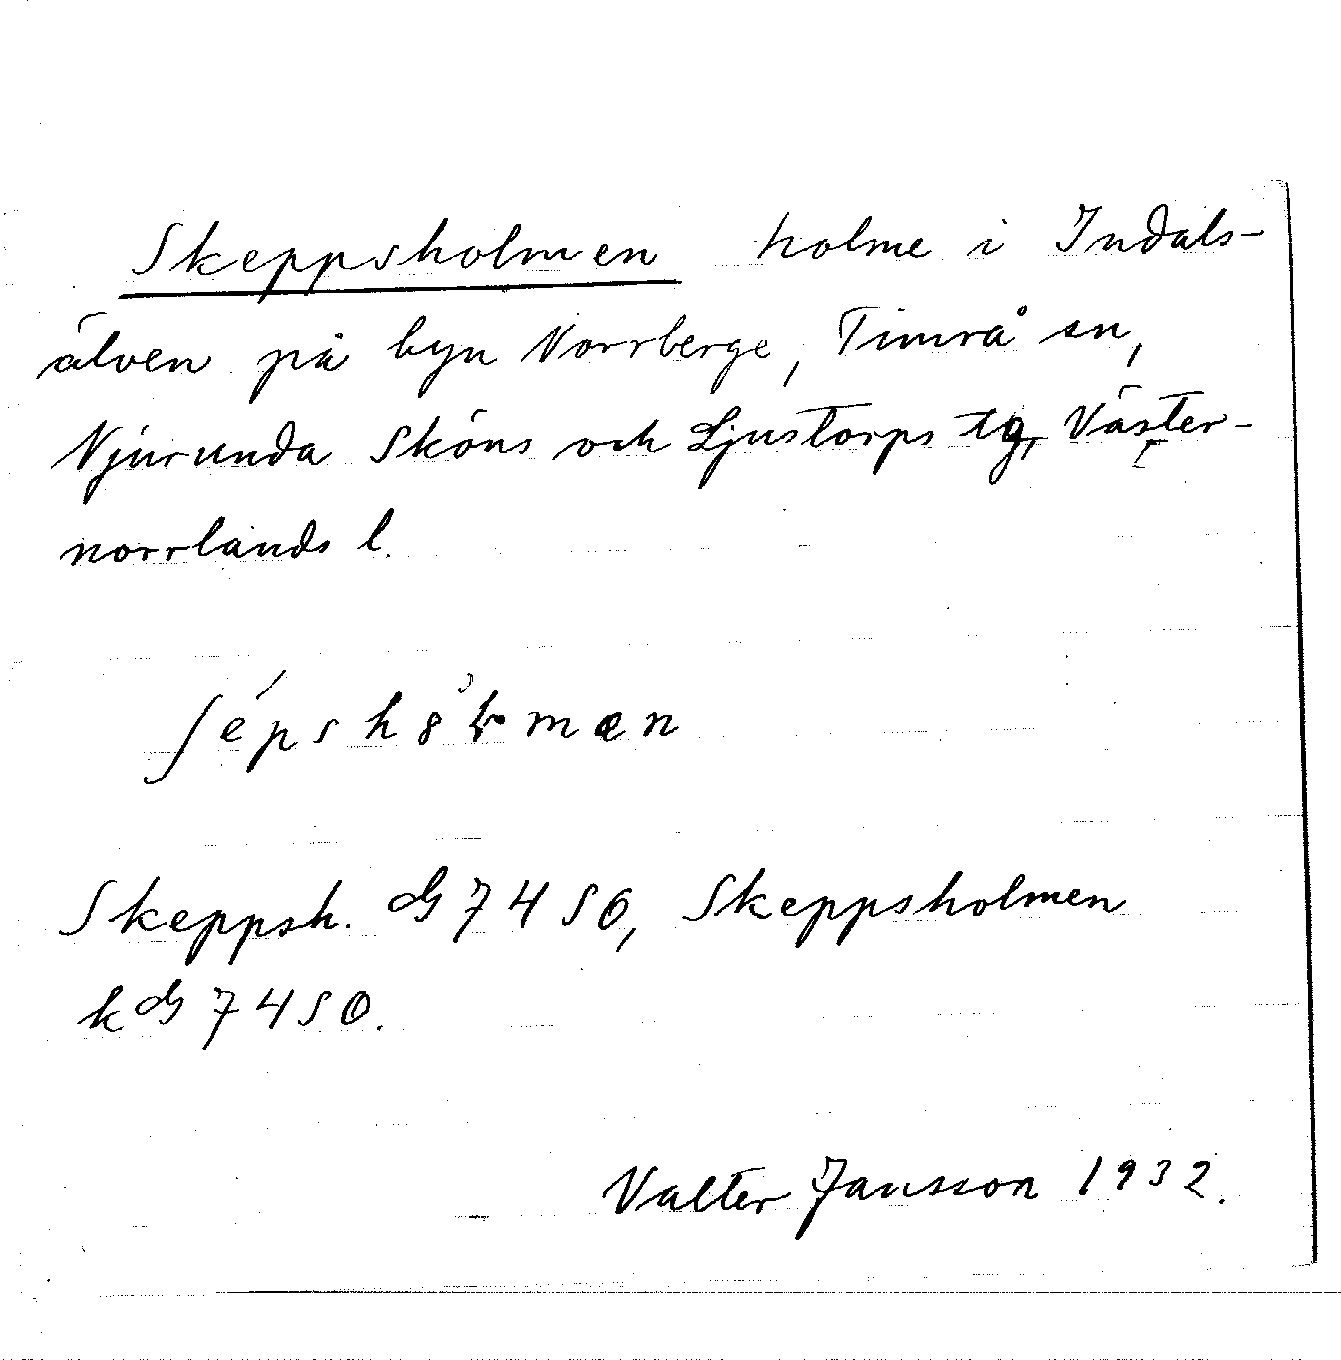 Skeppsholmen holme i Indals-
älven på byn Norrberge, Timrå sn,
Njurunda Sköns och Ljustorps tg, Väster-
norrlands l.
Skeppsh. GS 7450, Skeppsholmen
k GS 7450.
Valter Jansson 1932.